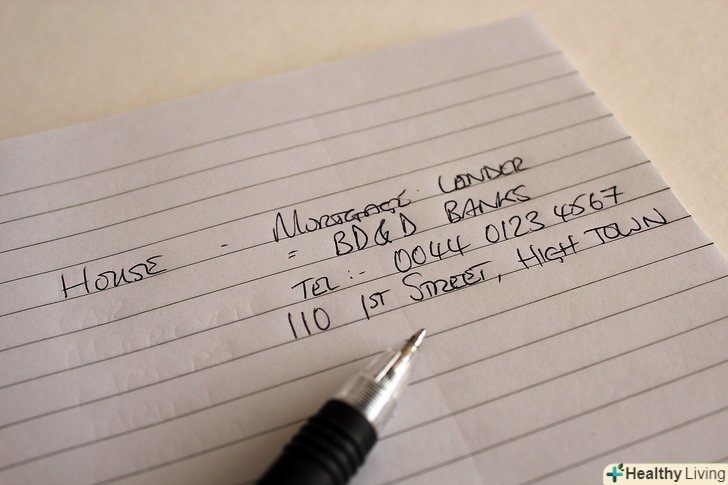 House - Mortgage Lender
= BD&D Banks
Tel:- 0044 0123 4567
110 1st Street, High Town
Healthy Living